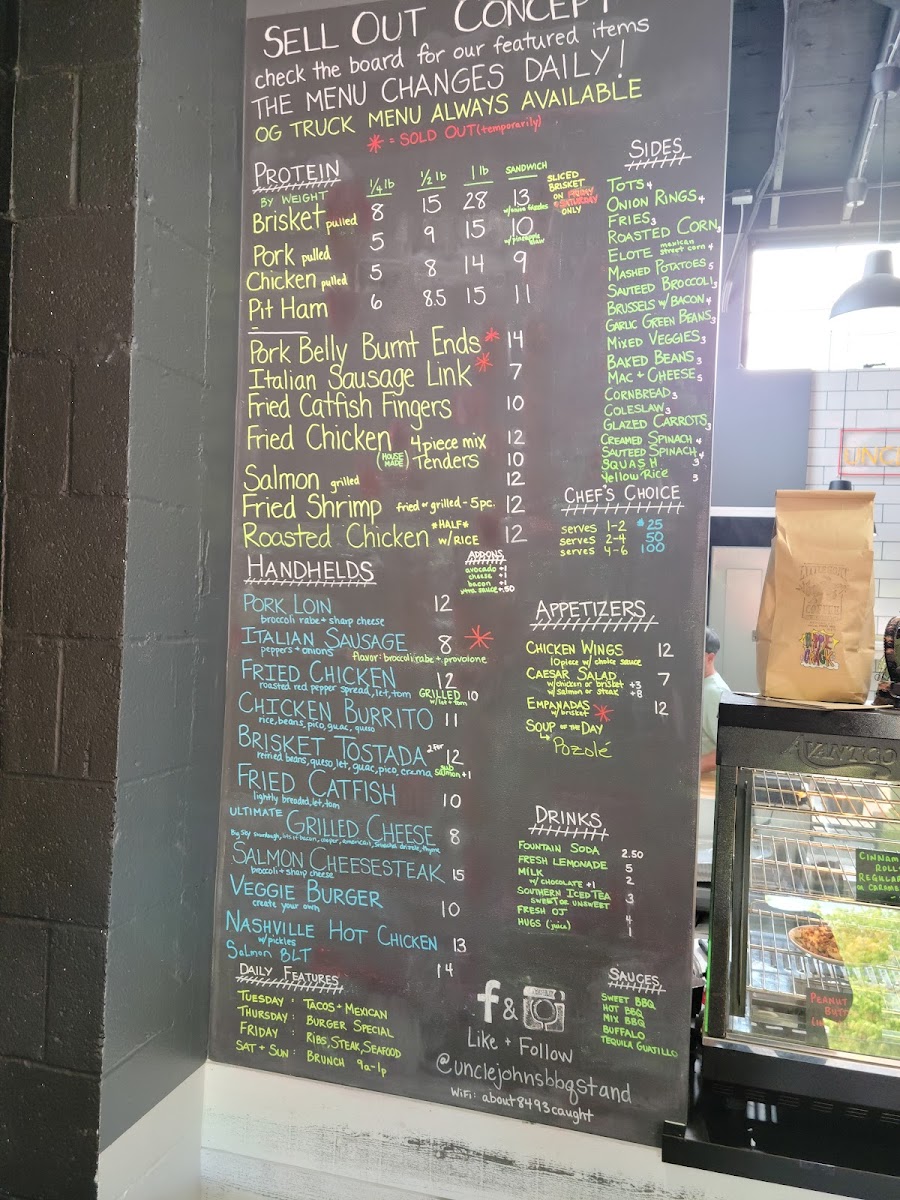 SELL OUT CONCEPT
check the board for our featured items
THE MENU CHANGES DAILY!
OG TRUCK MENU ALWAYS AVAILABLE
* = SOLD OUT (temporarily)
PROTEIN
BY WEIGHT
1/4 lb 1/2 lb 1 lb SANDWICH
Brisket pulled 8 15 28 13
w/onion frizzles
SLICED
BRISKET
ON FRIDAY
+ SATURDAY
ONLY
Pork pulled 5 9 15 10
w/pineapple slaw
Chicken pulled 5 8 14 9
Pit Ham 6 8.5 15 11
Pork Belly Burnt Ends * 14
Italian Sausage Link * 7
Fried Catfish Fingers 10
Fried Chicken 4 piece mix 12
(HOUSE MADE) Tenders 10
Salmon grilled 12
Fried Shrimp fried or grilled - 5pc. 12
Roasted Chicken *HALF* w/RICE 12
SIDES
TOTS 4
ONION RINGS 4
FRIES 3
ROASTED CORN 3
ELOTE mexican street corn 4
MASHED POTATOES 5
SAUTEED BROCCOLI 3
BRUSSELS W/BACON 4
GARLIC GREEN BEANS 3
MIXED VEGGIES 3
BAKED BEANS 3
MAC + CHEESE 5
CORNBREAD 3
COLESLAW 3
GLAZED CARROTS 3
CREAMED SPINACH 4
SAUTEED SPINACH 4
SQUASH 3
Yellow Rice 3
CHEF'S CHOICE
serves 1-2 $25
serves 2-4 50
serves 4-6 100
HANDHELDS
ADDONS
avocado +1
cheese +1
bacon +1
xtra sauce +.50
PORK LOIN 12
broccoli rabe + sharp cheese
ITALIAN SAUSAGE 8 *
peppers + onions
flavor: broccoli rabe + provolone
FRIED CHICKEN 12
roasted red pepper spread, let, tom GRILLED 10
w/let + tom
CHICKEN BURRITO 11
rice, beans, pico, guac, queso
BRISKET TOSTADA 2 for 12
refried beans, queso, let, guac, pico, crema sub salmon +1
FRIED CATFISH 10
lightly breaded, let, tom
ULTIMATE GRILLED CHEESE 8
SALMON CHEESESTEAK 15
broccoli + sharp cheese
VEGGIE BURGER 10
create your own
NASHVILLE HOT CHICKEN 13
w/pickles
Salmon BLT 14
APPETIZERS
CHICKEN WINGS 12
10 piece w/ choice sauce
CAESAR SALAD 7
w/chicken or brisket +3
w/salmon or steak +8
EMPANADAS * 12
w/ brisket
SOUP OF THE DAY
Pozolé
DRINKS
FOUNTAIN SODA 2.50
FRESH LEMONADE 5
MILK 2
w/ CHOCOLATE +1
SOUTHERN ICED TEA 3
SWEET OR UNSWEET
FRESH OJ 4
HUGS (juice) 1
DAILY FEATURES
TUESDAY : TACOS + MEXICAN
THURSDAY : BURGER SPECIAL
FRIDAY : RIBS, STEAK, SEAFOOD
SAT + SUN : BRUNCH 9a-1p
f &
Like + Follow
@unclejohnsbbqstand
WIFI: about8493caught
SAUCES
SWEET BBQ
HOT BBQ
MIX BBQ
BUFFALO
TEQUILA GUAJILLO
UNC
AVANTCO
CINNAM
ROLL
REGULAR
or CARAMEL
PEANUT
BUTT